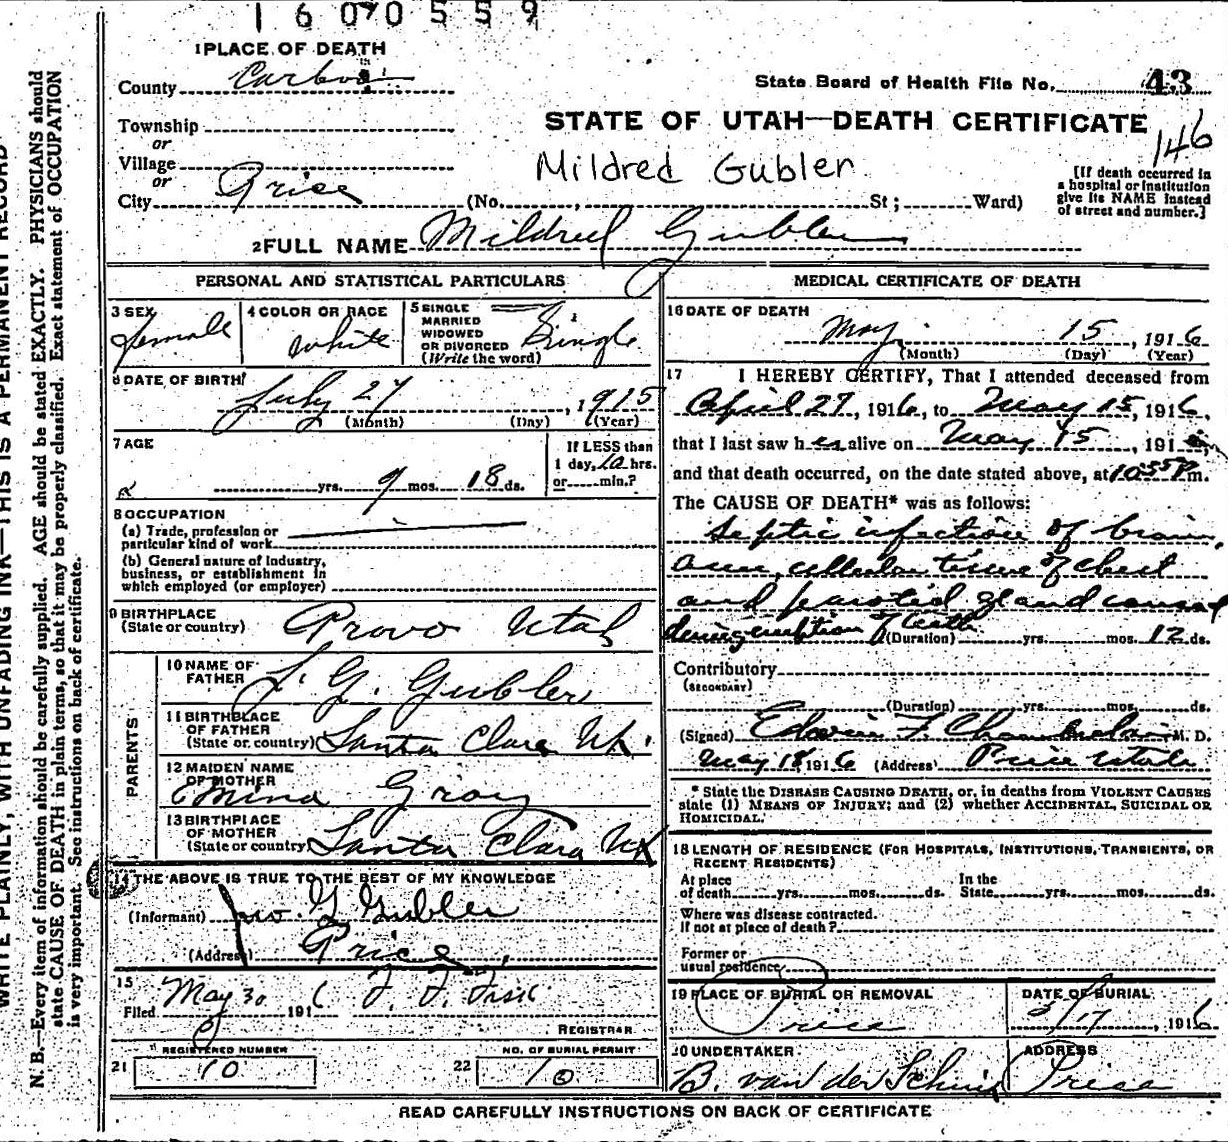 1 6 0 7 0 5 5 9
1 PLACE OF DEATH
County Carbon
State Board of Health File No. 43
Township
or
STATE OF UTAH—DEATH CERTIFICATE
146
Village
or
Mildred Gubler
City Price (No. , St ; Ward)
[If death occurred in
a hospital or institution
give its NAME instead
of street and number.]
2 FULL NAME Mildred Gubler
PERSONAL AND STATISTICAL PARTICULARS
3 SEX
Female
4 COLOR OR RACE
White
5 SINGLE
MARRIED
WIDOWED
OR DIVORCED
(Write the word)
Single
6 DATE OF BIRTH
July 27, 1915
(Month) (Day) (Year)
7 AGE
yrs. 9 mos. 18 ds.
If LESS than
1 day, hrs.
or min.?
8 OCCUPATION
(a) Trade, profession or
particular kind of work
(b) General nature of industry,
business, or establishment in
which employed (or employer)
9 BIRTHPLACE
(State or country)
Provo Utah
PARENTS
10 NAME OF
FATHER
J. G. Gubler
11 BIRTHPLACE
OF FATHER
(State or country)
Santa Clara Ut.
12 MAIDEN NAME
OF MOTHER
Emina Gray
13 BIRTHPLACE
OF MOTHER
(State or country)
Santa Clara Ut
14 THE ABOVE IS TRUE TO THE BEST OF MY KNOWLEDGE
(Informant) Jno. G Gubler
(Address) Price
15
Filed May 30 191 6
REGISTRAR
REGISTERED NUMBER
21 10
NO. OF BURIAL PERMIT
22 10
MEDICAL CERTIFICATE OF DEATH
16 DATE OF DEATH
May 15, 1916
(Month) (Day) (Year)
17 I HEREBY CERTIFY, That I attended deceased from
April 27, 1916, to May 15, 1916,
that I last saw her alive on May 15, 191
and that death occurred, on the date stated above, at 10 55 P m.
The CAUSE OF DEATH* was as follows:
Septic infection of brain,
arm, cellular tissue of chest
and parotid gland caused
during eruption of teeth
(Duration) yrs. mos. 12 ds.
Contributory
(SECONDARY)
(Duration) yrs. mos. ds.
(Signed) Edwin F. Chamberlain M. D.
May 18, 1916 (Address) Price Utah
* State the DISEASE CAUSING DEATH, or, in deaths from VIOLENT CAUSES
state (1) MEANS OF INJURY; and (2) whether ACCIDENTAL, SUICIDAL OR
HOMICIDAL.
18 LENGTH OF RESIDENCE (FOR HOSPITALS, INSTITUTIONS, TRANSIENTS, OR
RECENT RESIDENTS)
At place
of death yrs. mos. ds.
In the
State yrs. mos. ds.
Where was disease contracted,
if not at place of death?
Former or
usual residence
19 PLACE OF BURIAL OR REMOVAL
Price
DATE OF BURIAL
5/17, 1916
20 UNDERTAKER
B. van der Schuit
ADDRESS
Price
READ CAREFULLY INSTRUCTIONS ON BACK OF CERTIFICATE
WRITE PLAINLY, WITH UNFADING INK—THIS IS A PERMANENT RECORD
N. B.—Every item of information should be carefully supplied. AGE should be stated EXACTLY. PHYSICIANS should
state CAUSE OF DEATH in plain terms, so that it may be properly classified. Exact statement of OCCUPATION
is very important. See instructions on back of certificate.